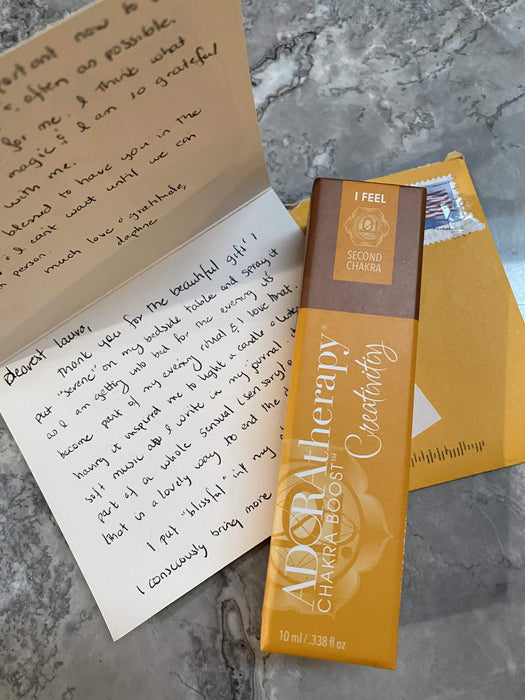 portant now to
often as possible.
for me. I think what
magic & I am so grateful
with me.
blessed to have you in the
I can't wait until we can
in person.
much love & gratitude,
daphne
Dearest Laura,
Thank you for the beautiful gift! I
put "serene" on my bedside table and spray it
as I am getting into bed for the evening it's
become part of my evening ritual & I love that.
having it inspired me to light a candle &
soft music and I write in my journal.
part of a whole sensual (sensory)
that is a lovely way to end the
I put "blissful" in my
I consciously bring more
I FEEL
SECOND
CHAKRA
ADORAtherapy®
CHAKRA BOOST™
Creativity
10 ml / .338 fl oz